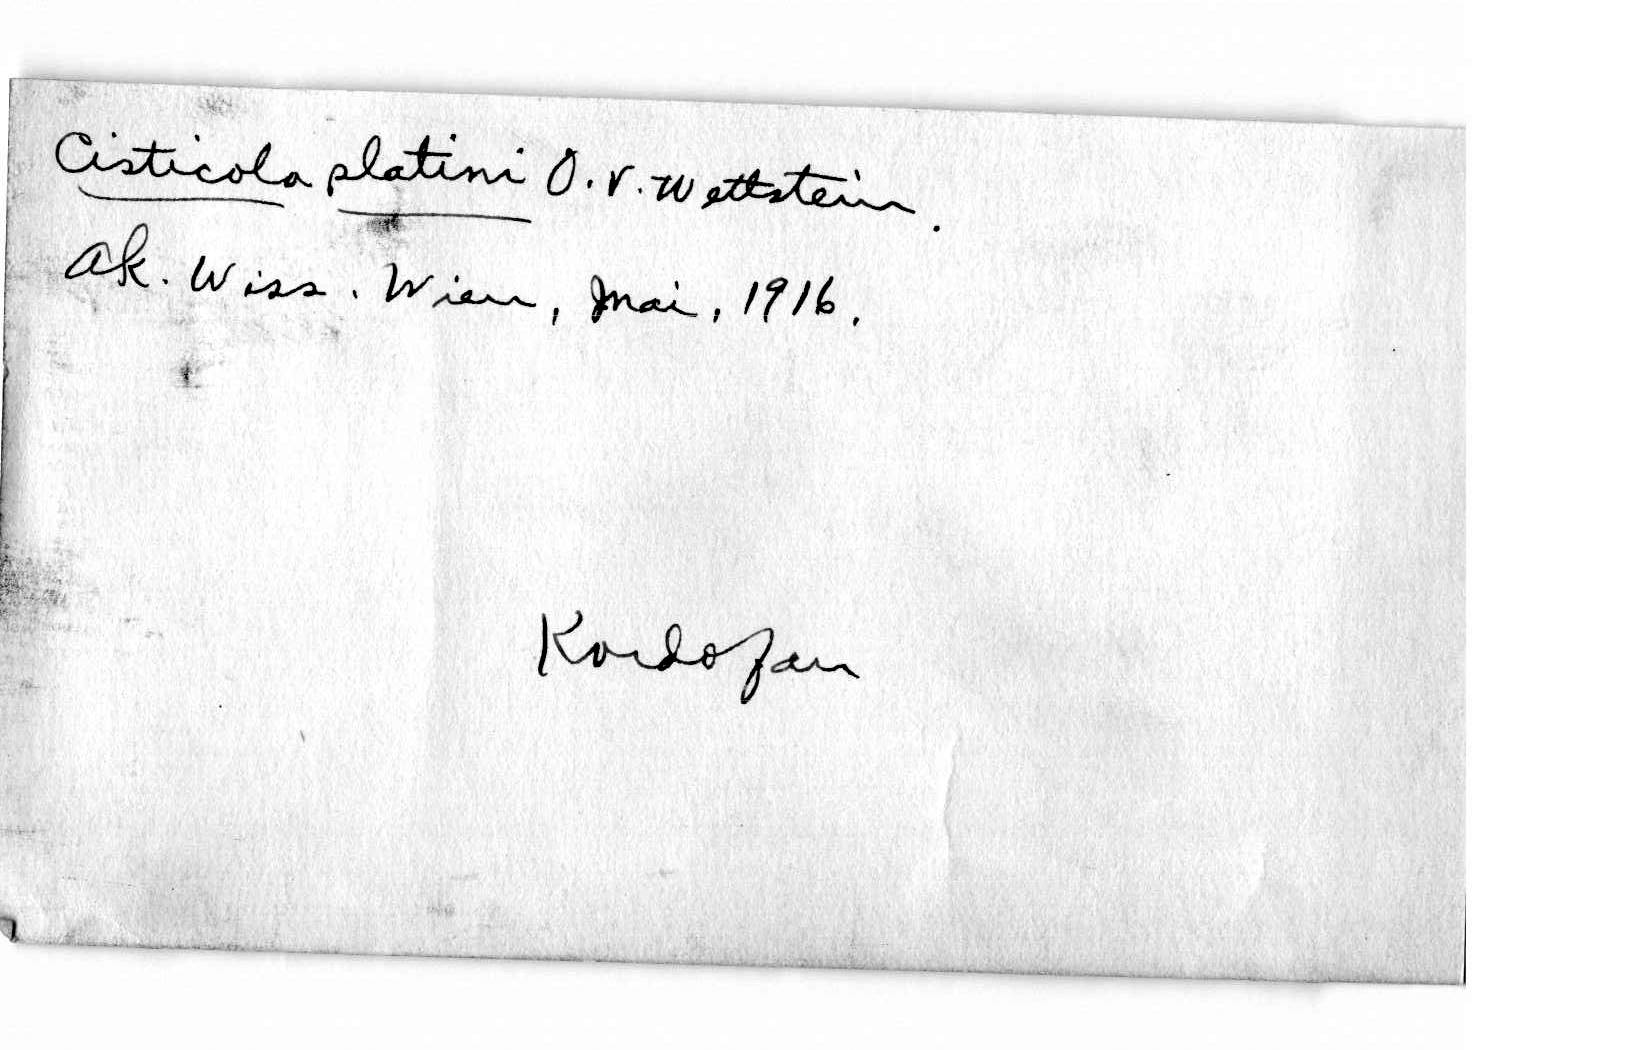 Cisticola slatini O. v. Wettstein.
Ak. Wiss. Wien, Mai, 1916.
Kordofan